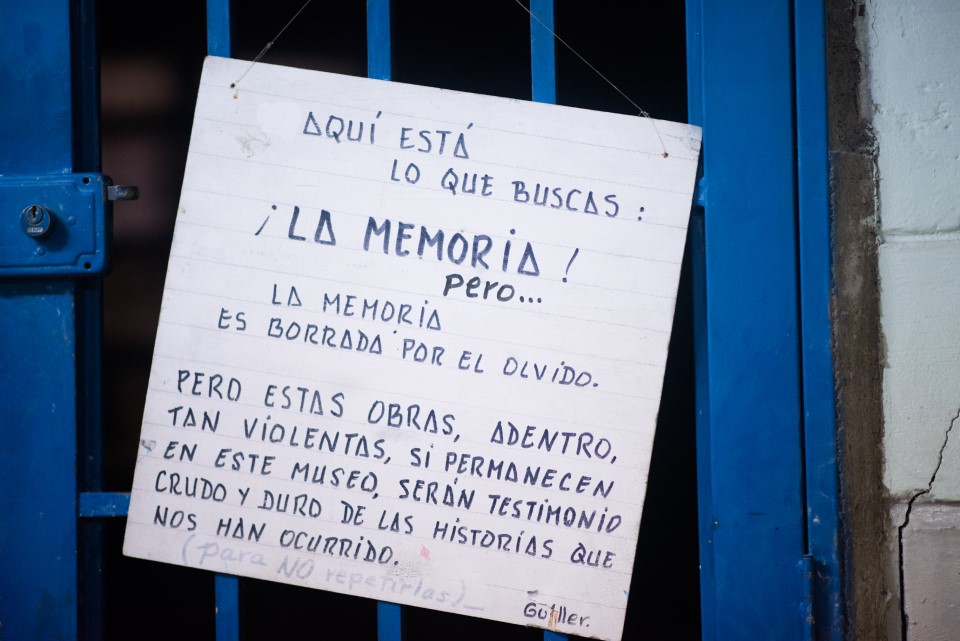 AQUÍ ESTÁ
LO QUE BUSCAS :
¡LA MEMORIA!
Pero...
LA MEMORIA
ES BORRADA POR EL OLVIDO.
PERO ESTAS OBRAS, ADENTRO,
TAN VIOLENTAS, SI PERMANECEN
EN ESTE MUSEO, SERÁN TESTIMONIO
CRUDO Y DURO DE LAS HISTORIAS QUE
NOS HAN OCURRIDO.
(para NO repetirlas)